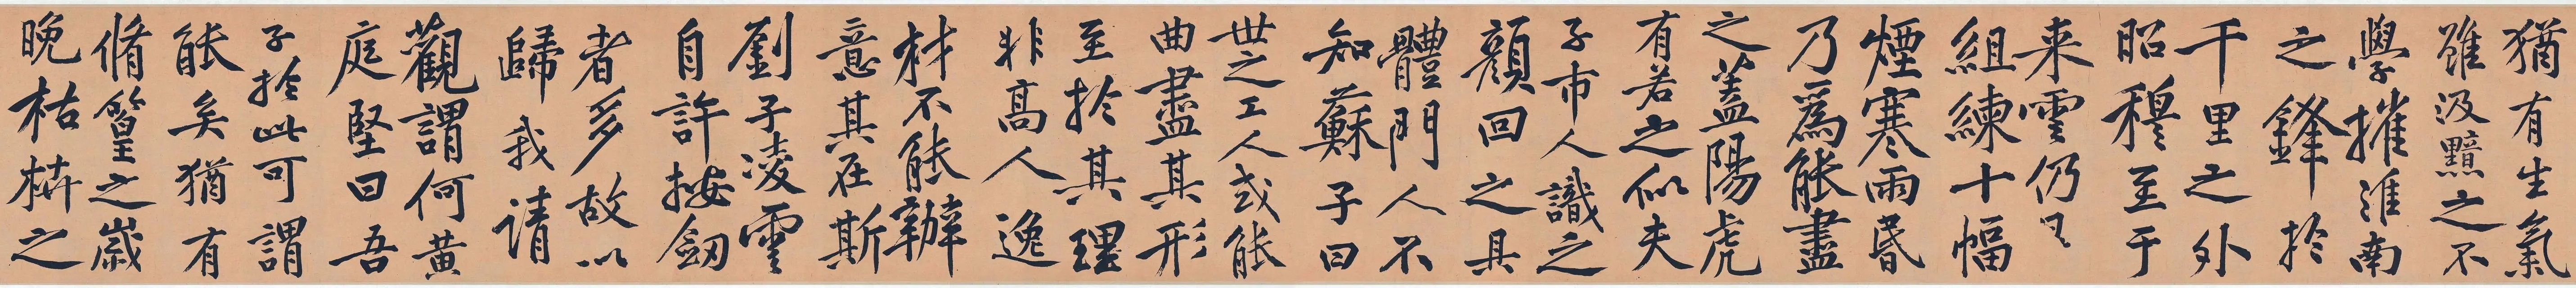 猶有生氣
雖汲黯之不
學摧淮南
之鋒於
千里之外
昭穆至于
来雲仍
組練十幅
煙寒雨昏
乃爲能盡
之蓋陽虎
有若之似夫
子市人識之
顏回之具
體門人不
知蘇子曰
世之工人或能
曲盡其形
至於其理
非高人逸
材不能辦
意其在斯
劉子凌雲
自許按劒
者多故以
歸我請
觀謂何黃
庭堅曰吾
子於此可謂
能矣猶有
脩篁之歲
晚枯枿之